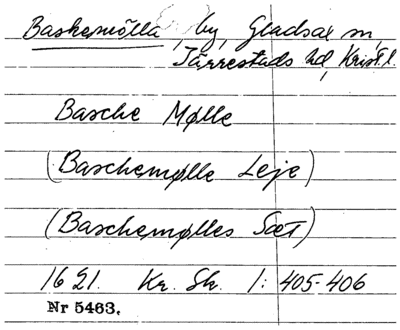 Baskemölla, by, Gladsax sn,
Järrestads hd, Krist. l.
Basche Mølle
(Baschemølle Leje)
(Baschemølles Sæt)
1621. Kr. Sk. 1: 405-406
Nr 5463.